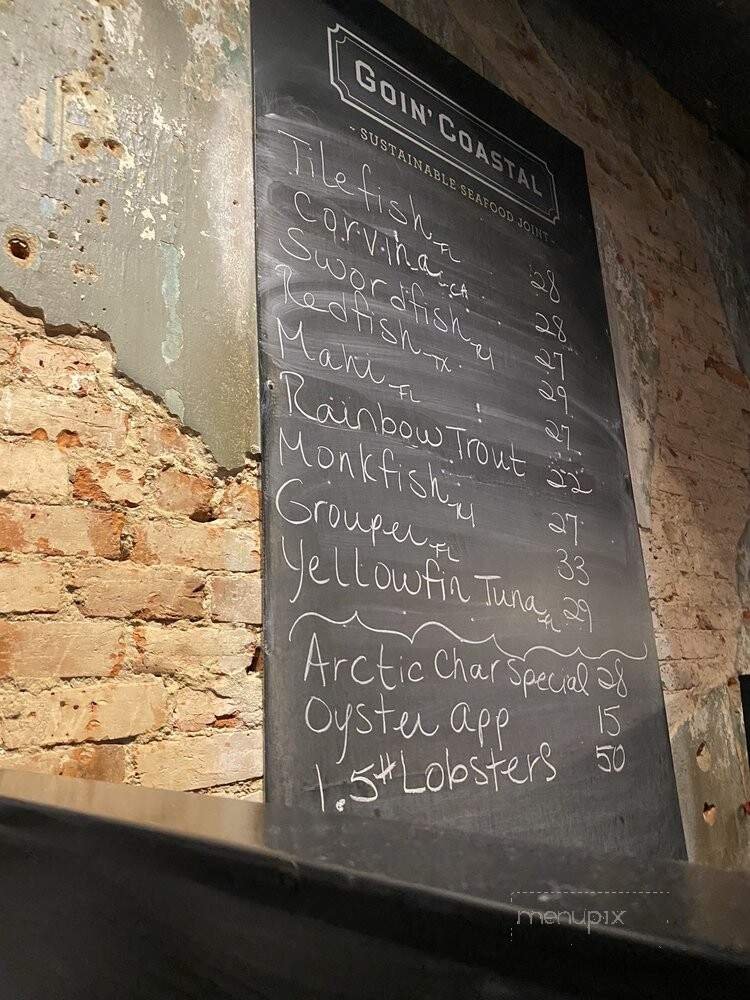 GOIN' COASTAL
- SUSTAINABLE SEAFOOD JOINT -
Tilefish - FL 28
Corvina - CA 28
Swordfish - RI 27
Redfish - TX 29
Mahi - FL 27
Rainbow Trout 22
Monkfish - RI 27
Grouper - FL 33
Yellowfin Tuna - FL 29
Arctic Char Special 28
Oyster app 15
1.5# Lobsters 50
menupix